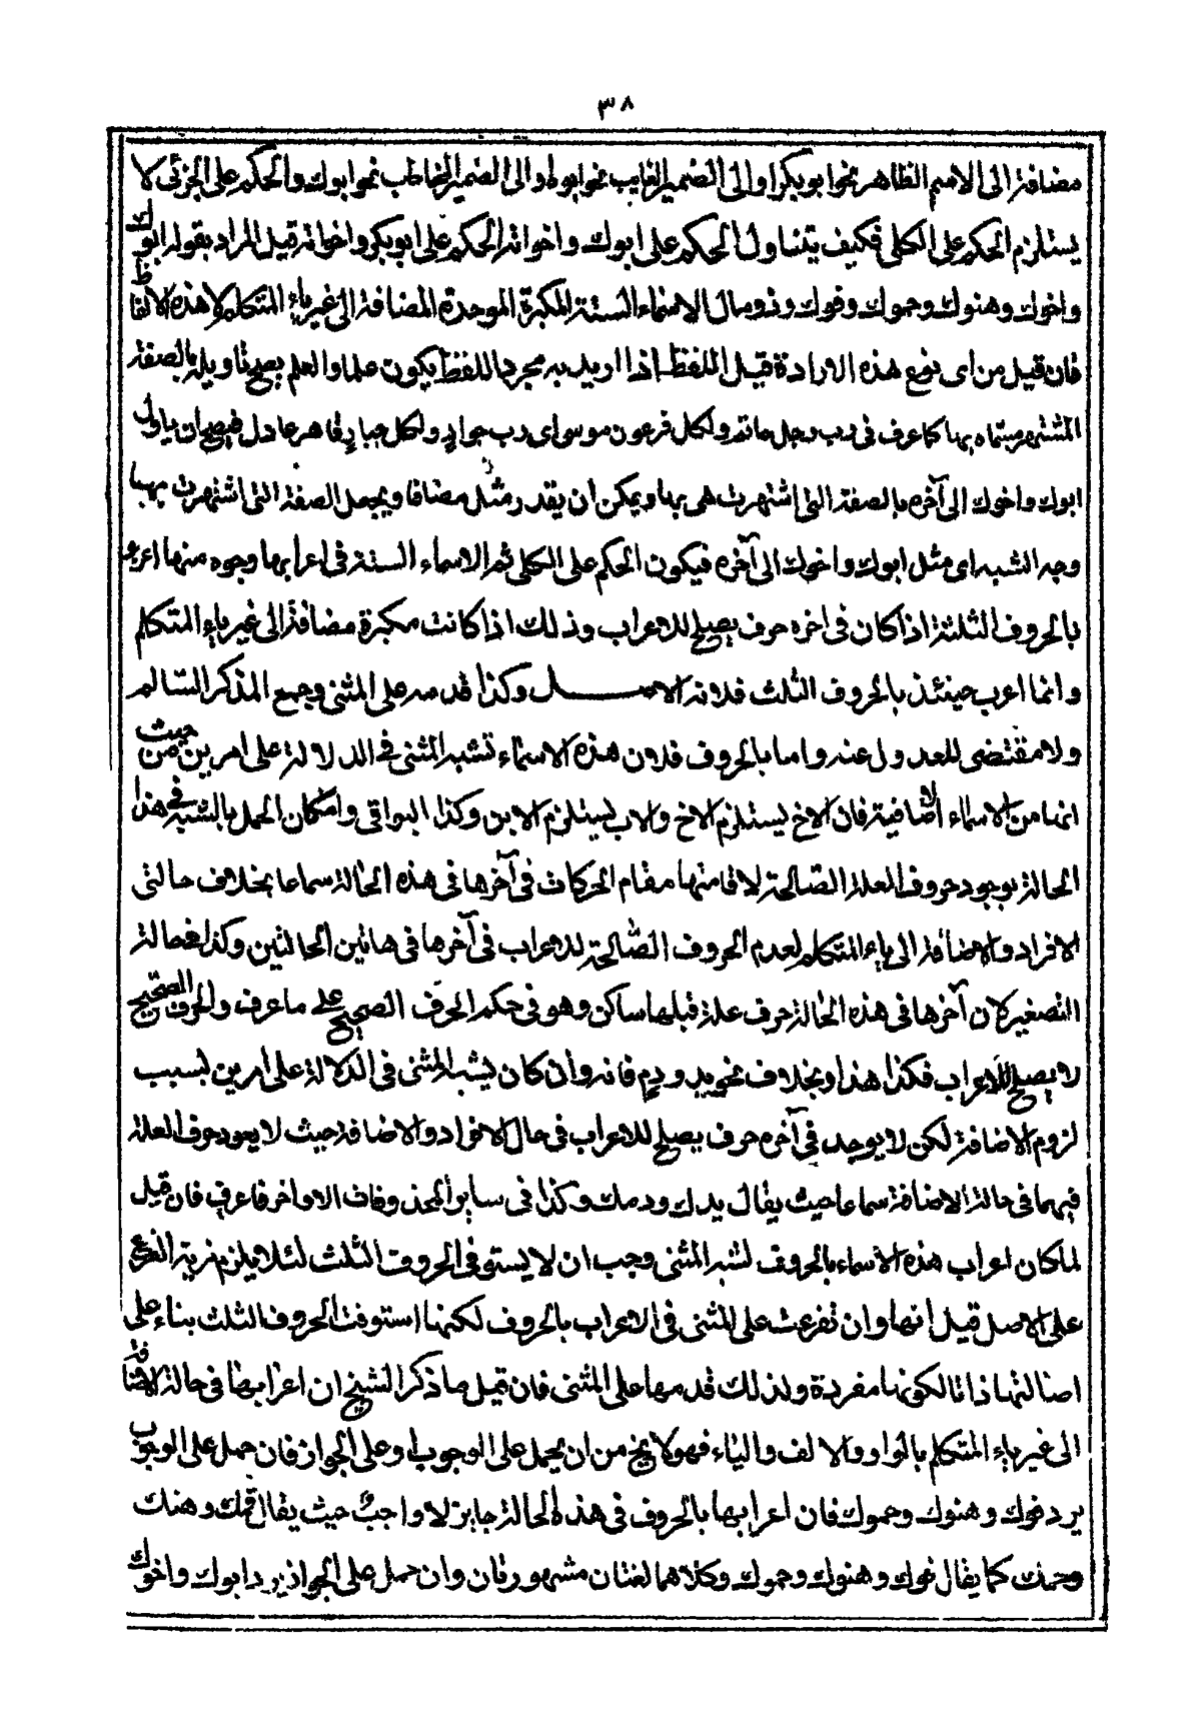 ٣٨
مضافة الى الاسم الظاهر نحو ابو بكر او الى الضمير الغايب نحو ابوه او الى الضمير المخاطب نحو ابوك والحكم على الجزئى لا
يستلزم الحكم على الكلى فكيف يتناول الحكم على ابوك واخواته الحكم على ابو بكر واخواته قيل المراد بقوله ابوك
واخوك وهنوك وحموك وفوك وذو مال الاسماء الستة المكبرة الموحدة المضافة الى غير ياء المتكلم لا هذه الالفاظ
فان قيل من اى نوع هذه الارادة قيل اللفظ اذا اريد به مجرد اللفظ يكون علما والعلم يصح تاويله بالصفة
المشتهر مسماه بها كما عرف فى رب رجل حاتم ولكل فرعون موسى اى رب جواد ولكل جبار قاهر عادل فيصح ان ياول
ابوك واخوك الى آخره بالصفة التى اشتهرت هى بها ويمكن ان يقدر مثل مضافا ويجعل الصفة التى اشتهرت بها
وجه الشبه اى مثل ابوك واخوك الى آخره فيكون الحكم على الكلى ثم الاسماء الستة فى اعرابها وجوه منها اعرب
بالحروف الثلثة اذا كان فى اخره حرف يصلح للاعراب وذلك اذا كانت مكبرة مضافة الى غير ياء المتكلم
وانما اعرب حينئذ بالحروف الثلث فلانه الاصل وكذا قدمه على المثنى وجمع المذكر السالم
ولا مقتضى للعدول عنه واما بالحروف فلان هذه الاسماء تشبه المثنى فى الدلالة على امرين من حيث
انها من الاسماء الاضافية فان الاخ يستلزم الاخ والاب يستلزم الابن وكذا البواقى وامكان الحمل بالشبه فى هذا
الحالة بوجود حروف العلة الصالحة لاقامتها مقام الحركات فى آخرها فى هذه الحالة سماعا بخلاف حالتى
الافراد والاضافة الى ياء المتكلم لعدم الحروف الصالحة للاعراب فى آخرها فى هاتين الحالتين وكذا فى حالة
التصغير لان آخرها فى هذه الحالة حرف علة قبلها ساكن وهو فى حكم الحرف الصحيح على ما عرف والحرف الصحيح
لا يصلح للاعراب فكذا هذا وبخلاف نحو يد ودم فانه وان كان يشبه المثنى فى الدلالة على امرين بسبب
لزوم الاضافة لكن لا يوجد فى آخره حرف يصلح للاعراب فى حال الافراد والاضافة حيث لا يعود حرف العلة
فيهما فى حالة الاضافة سماعا حيث يقال يدك ودمك وكذا فى ساير المحذوفات الاواخر فاعرف فان قيل
لما كان اعراب هذه الاسماء بالحروف لشبه المثنى وجب ان لا يستوفى الحروف الثلث لئلا يلزم مزية الفرع
على الاصل قيل انها وان تفرعت على المثنى فى الاعراب بالحروف لكنها استوفت الحروف الثلث بناء على
اصالتها ذاتا لكونها مفردة ولذلك قدمها على المثنى فان قيل ما ذكر الشيخ ان اعرابها فى حالة الاضافة
الى غير ياء المتكلم بالواو والالف والياء فهو لا يخ من ان يحمل على الوجوب او على الجواز فان حمل على الوجوب
يرد فوك وهنوك وحموك فان اعرابها بالحروف فى هذه الحالة جايز لا واجب حيث يقال فمك وهنك
وحمك كما يقال فوك وهنوك وحموك وكلاهما لغتان مشهورتان وان حمل على الجواز يرد ابوك واخوك